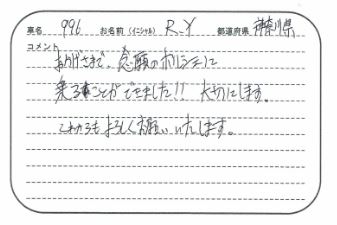 車名 996 お名前（イニシャル） R.Y 都道府県 神奈川県
コメント
おかげさまで、念願のポルシェに
乗ることができました!! 大切にします。
これからもよろしくお願いいたします。